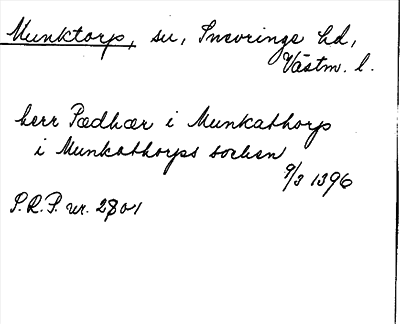 Munktorp, sn, Snevringe hd,
Västm. l.
herr Pædhær i Munkathorp
i Munkathorps sochen
9/3 1396
S.R.P. nr. 2804